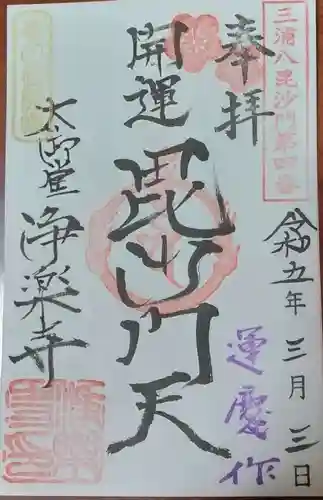 三浦八毘沙門第四番
奉拝
令和五年三月三日
開運
毘沙門天
運慶作
大御堂
浄楽寺